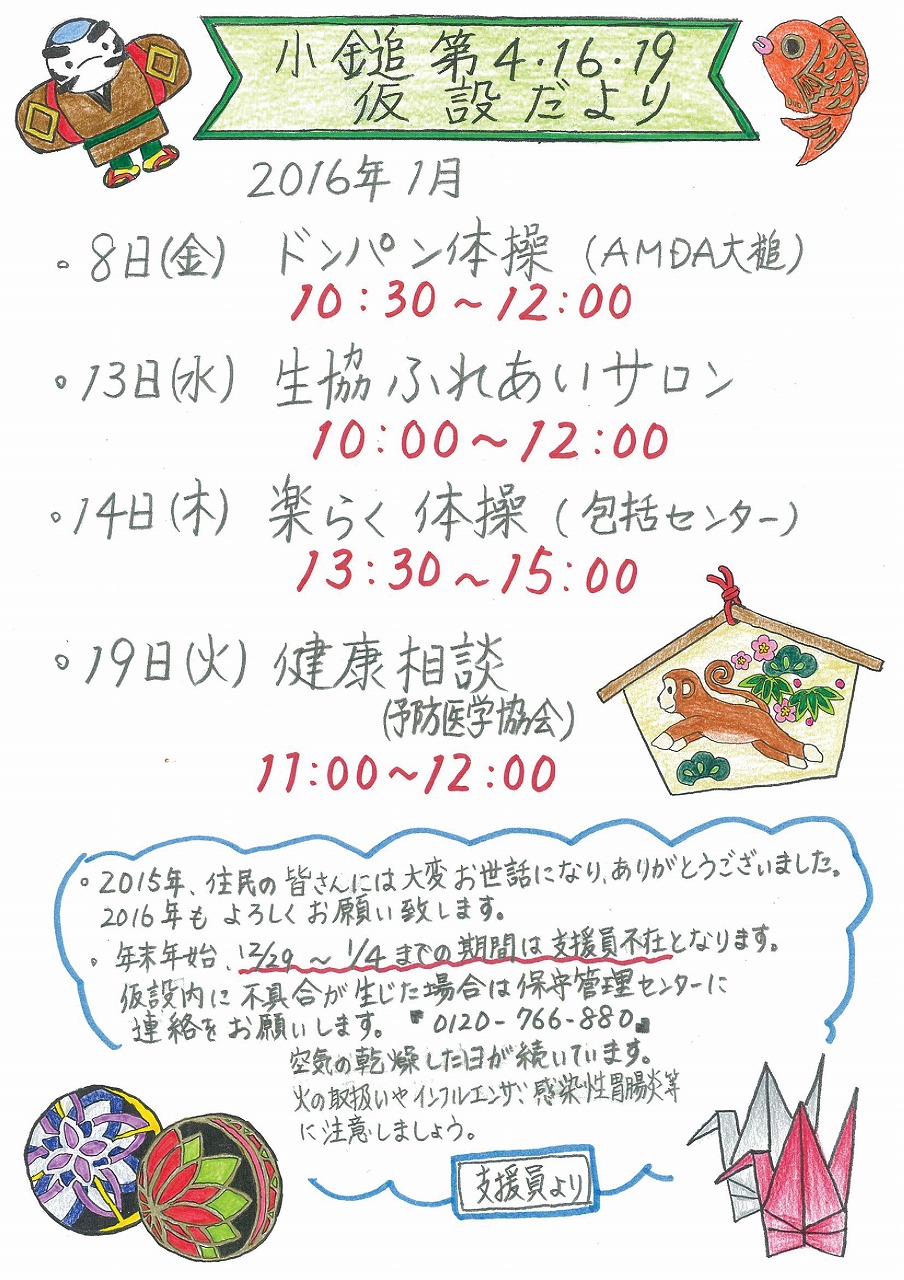 小鎚第4.16.19
仮設だより
2016年1月
。8日(金) ドンパン体操 (AMDA大槌)
10:30～12:00
。13日(水) 生協ふれあいサロン
10:00～12:00
。14日(木) 楽らく体操 (包括センター)
13:30～15:00
。19日(火) 健康相談
(予防医学協会)
11:00～12:00
。2015年、住民の皆さんには大変お世話になり、ありがとうございました。
2016年もよろしくお願い致します。
。年末年始、12/29～1/4までの期間は支援員不在となります。
仮設内に不具合が生じた場合は保守管理センターに
連絡をお願いします。〝0120-766-880〟
空気の乾燥した日が続いています。
火の取扱いやインフルエンザ、感染性胃腸炎等
に注意しましょう。
支援員より